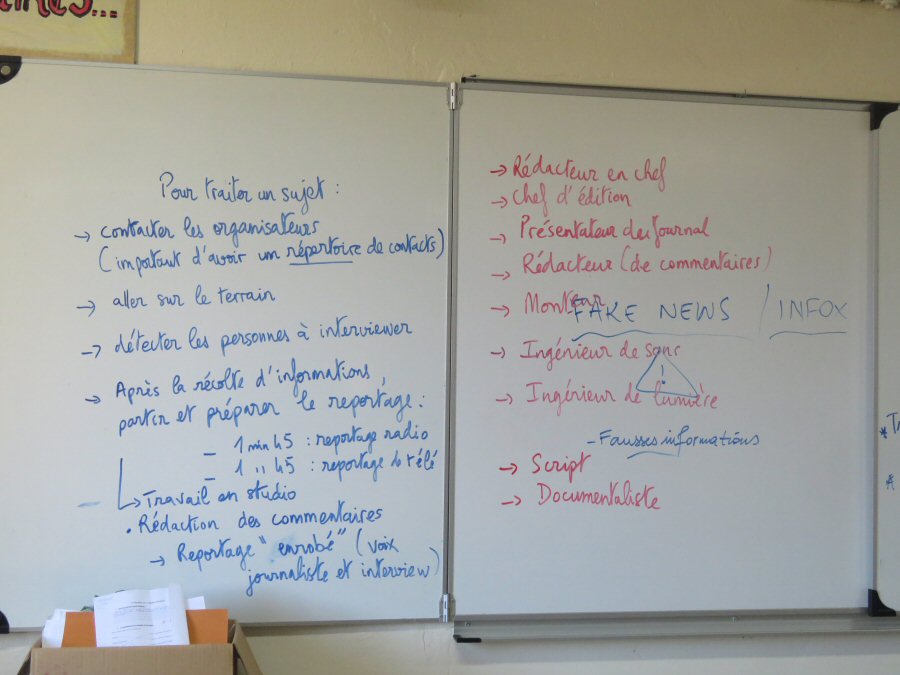 Pour traiter un sujet :
→ contacter les organisateurs
(important d'avoir un répertoire de contacts)
→ aller sur le terrain
→ détecter les personnes à interviewer
→ Après la récolte d'informations,
partir et préparer le reportage :
– 1 min 45 : reportage radio
– 1 " 45 : reportage de télé
→ Travail en studio
• Rédaction des commentaires
→ Reportage "enrobé" (voix
journaliste et interview)
→ Rédacteur en chef
→ Chef d'édition
→ Présentateur du Journal
→ Rédacteur (de commentaires)
→ Monteur
FAKE NEWS / INFOX
→ Ingénieur de son
!
→ Ingénieur de lumière
- Fausses informations
→ Script
→ Documentaliste